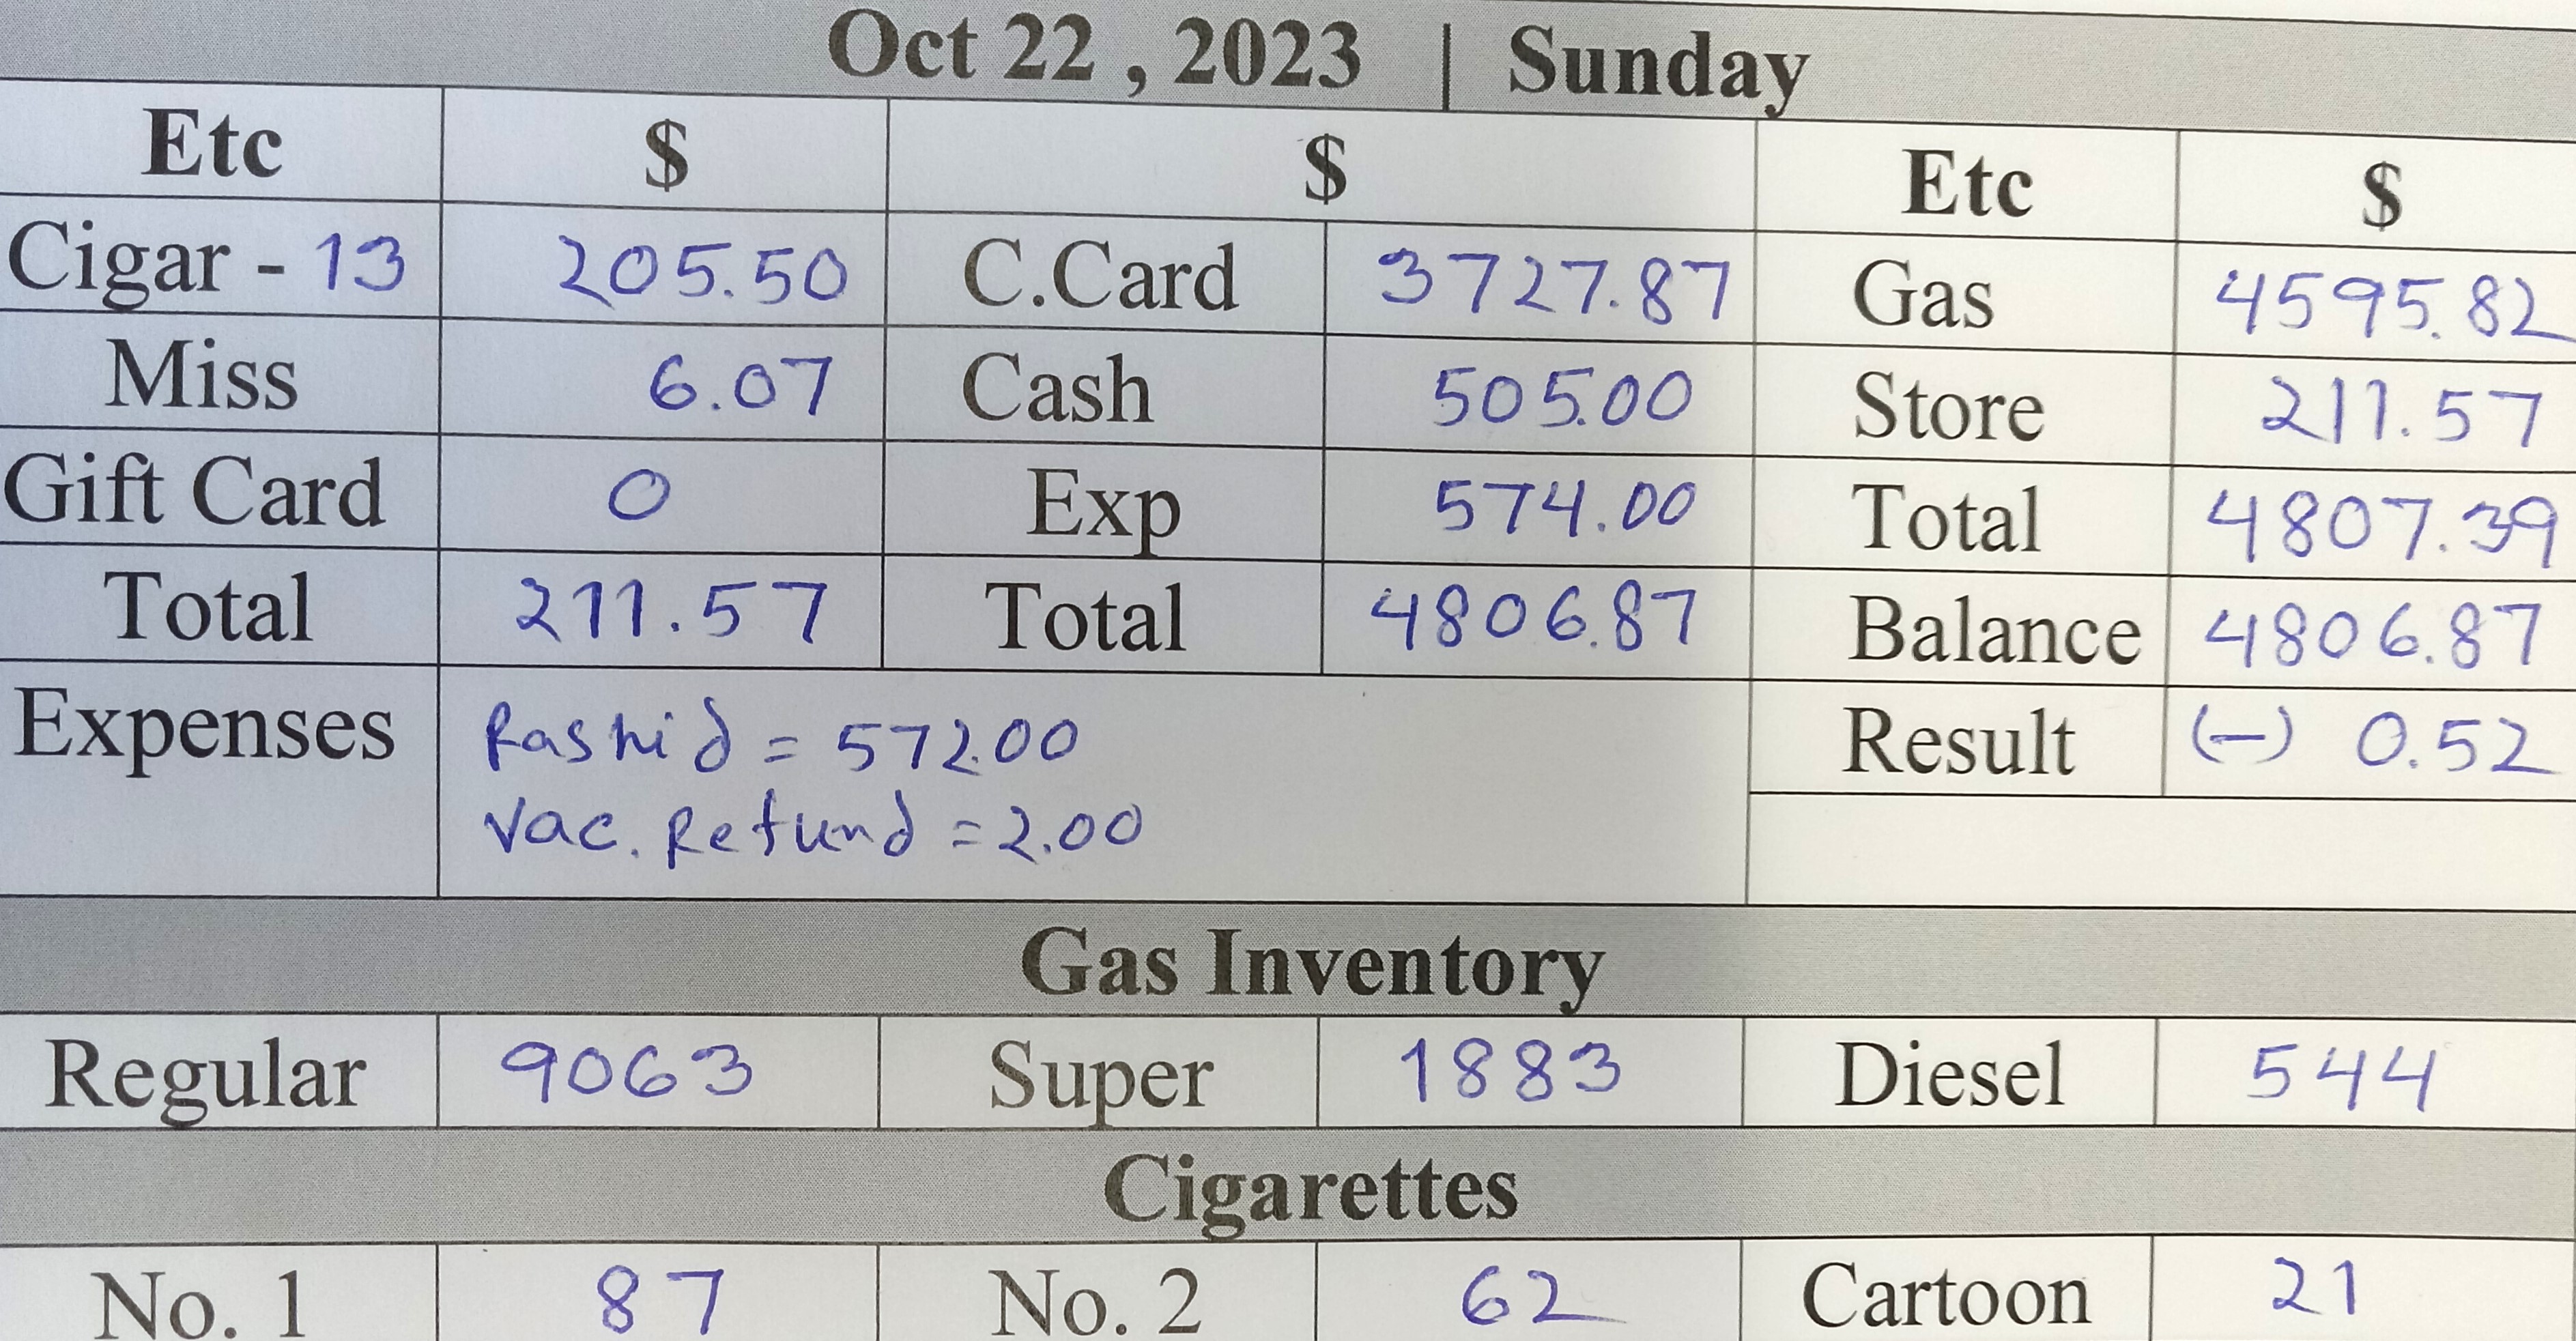 Oct 22 , 2023 | Sunday
Etc $ $ Etc $
Cigar - 13 205.50 C.Card 3727.87 Gas 4595.82
Miss 6.07 Cash 505.00 Store 211.57
Gift Card 0 Exp 574.00 Total 4807.39
Total 211.57 Total 4806.87 Balance 4806.87
Expenses Rashid = 572.00 Result (-) 0.52
Vac. Refund = 2.00
Gas Inventory
Regular 9063 Super 1883 Diesel 544
Cigarettes
No. 1 87 No. 2 62 Cartoon 21